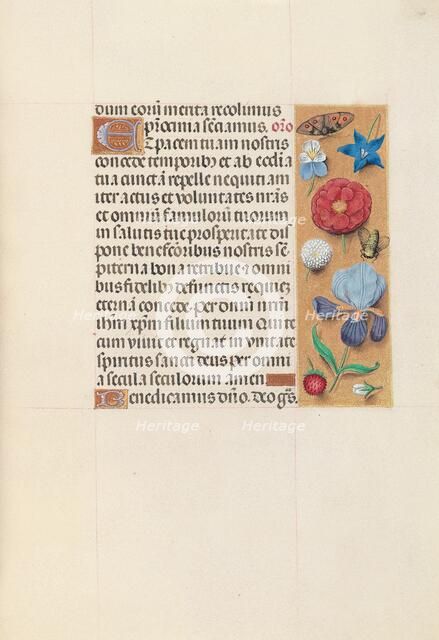 dum eorū merita recolimus
p̄rocīnia sēciamus. or̄o
Et pacem tuam nostris
concede temporibꝫ et ab ecclīa
tua cunctam repelle nequitiam
iter actus et voluntates nr̄as
et omniū famulorū tuorum
in salutis tue prosperitate dis
pone benefc̄oribus nostris sē
piterna bona retribue et omni
bus fidelibꝫ defunctis requiē
eternā concede. per dn̄m nr̄m
ih̄m xp̄m filium tuum Qui te
cum viuit et regnat in vnitate
spiritus sancti deus per omni
a secula seculorum amen.
Benedicamus dn̄o. Deo gr̄s.
Heritage
Heritage
Heritage
Heritage
Heritage
Heritage